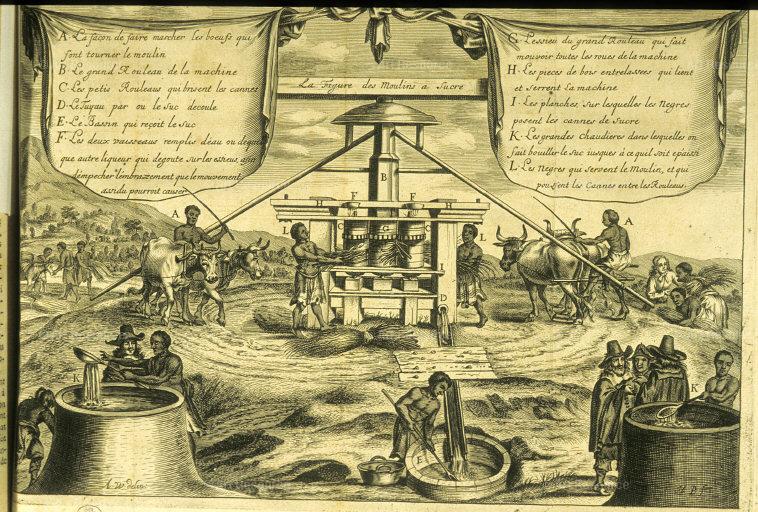 A. La façon de faire marcher les boeufs qui
font tourner le moulin
B. Le grand Rouleau de la machine
C. Les petis Rouleaus qui brisent les cannes
D. Le Tuyau par ou le suc decoule
E. Le Bassin qui reçoit le suc
F. Les deux vaisseaus remplis d'eau ou de
que autre liqueur qui degoute sur les esieus, afin
d'empecher l'embrazement que le mouvement
assidu pourroit causer
La Figure des Moulins a Sucre
G. L'essieu du grand Rouleau qui fait
mouvoir toutes les roues de la machine
H. Les pieces de bois entrelassees qui lient
et serrent la machine
I. Les planches, sur lesquelles les Negres
posent les cannes de sucre
K. Les grandes chaudieres dans lesquelles on
fait bouillir le suc iusques à ce qu'il soit epaissi
L. Les Negres qui servent le Moulin, et qui
poussent les Cannes entre les Rouleaus.
A
A
B
F
F
H
H
C
G
C
L
L
I
D
E
K
K
A. W. delin.